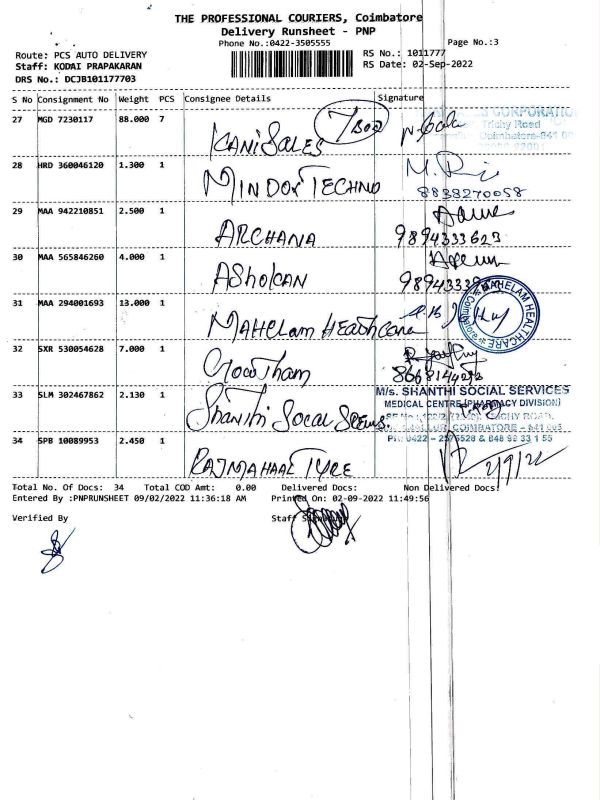 THE PROFESSIONAL COURIERS, Coimbatore
Delivery Runsheet - PNP
Phone No.:0422-3505555
Page No.:3
Route: PCS AUTO DELIVERY
RS No.: 1011777
Staff: KODAI PRAPAKARAN
RS Date: 02-Sep-2022
DRS No.: DCJB101177703
S No Consignment No Weight PCS Consignee Details Signature
27 MGD 7230117 88.000 7 KANi SALES 7 BOX
CORPORATION
Trichy Road
Coimbatore-641 00
28 HRD 360046120 1.300 1 MINDOX TECHNO
8838270058
29 MAA 942210851 2.500 1 ARCHANA
9894333623
30 MAA 565846260 4.000 1 ASHOKAN
31 MAA 294001693 13.000 1 MAHELAM HEATHCARE
MAHELAM HEALTHCARE
Coimbatore
32 SXR 530054628 7.000 1 GOWTHAM
33 SLM 302467862 2.130 1 Shanthi Socal
M/s. SHANTHI SOCIAL SERVICES
MEDICAL CENTRE (PHARMACY DIVISION)
TRICHY ROAD,
COIMBATORE - 641 005
34 SPB 10089953 2.450 1 RAJMAHAAL TYRE
2/9/22
Total No. Of Docs: 34 Total COD Amt: 0.00 Delivered Docs: Non Delivered Docs:
Entered By :PNPRUNSHEET 09/02/2022 11:36:18 AM Printed On: 02-09-2022 11:49:56
Verified By
Staff Signature